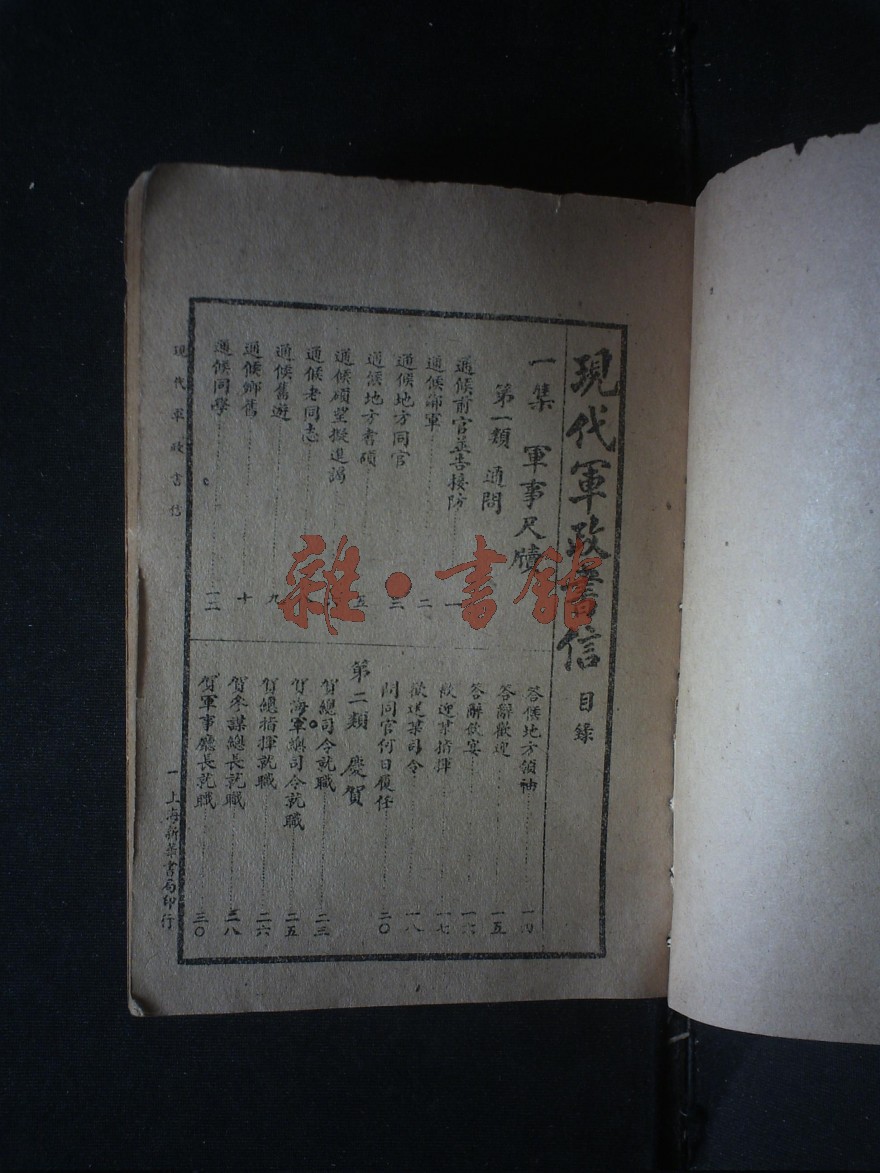 現代軍政書信 目錄
一集 軍事尺牘
第一類 通問
通候前官並告接防
通候鄰軍 二
通候地方同官 三
通候地方耆碩 五
通候碩望擬進謁
通候老同志
通候舊遊 九
通候鄉舊 十
通候同學 一二
答候地方領袖
答辭歡迎 一五
答辭飲宴 一六
歡迎某指揮 一七
歡送某司令 一八
問同官何日履任 二〇
第二類 慶賀
賀總司令就職 二三
賀海軍總司令就職 二五
賀總指揮就職 二六
賀參謀總長就職 二八
賀軍事廳長就職 三〇
現代軍政書信
一 上海新華書局印行
雜·書館